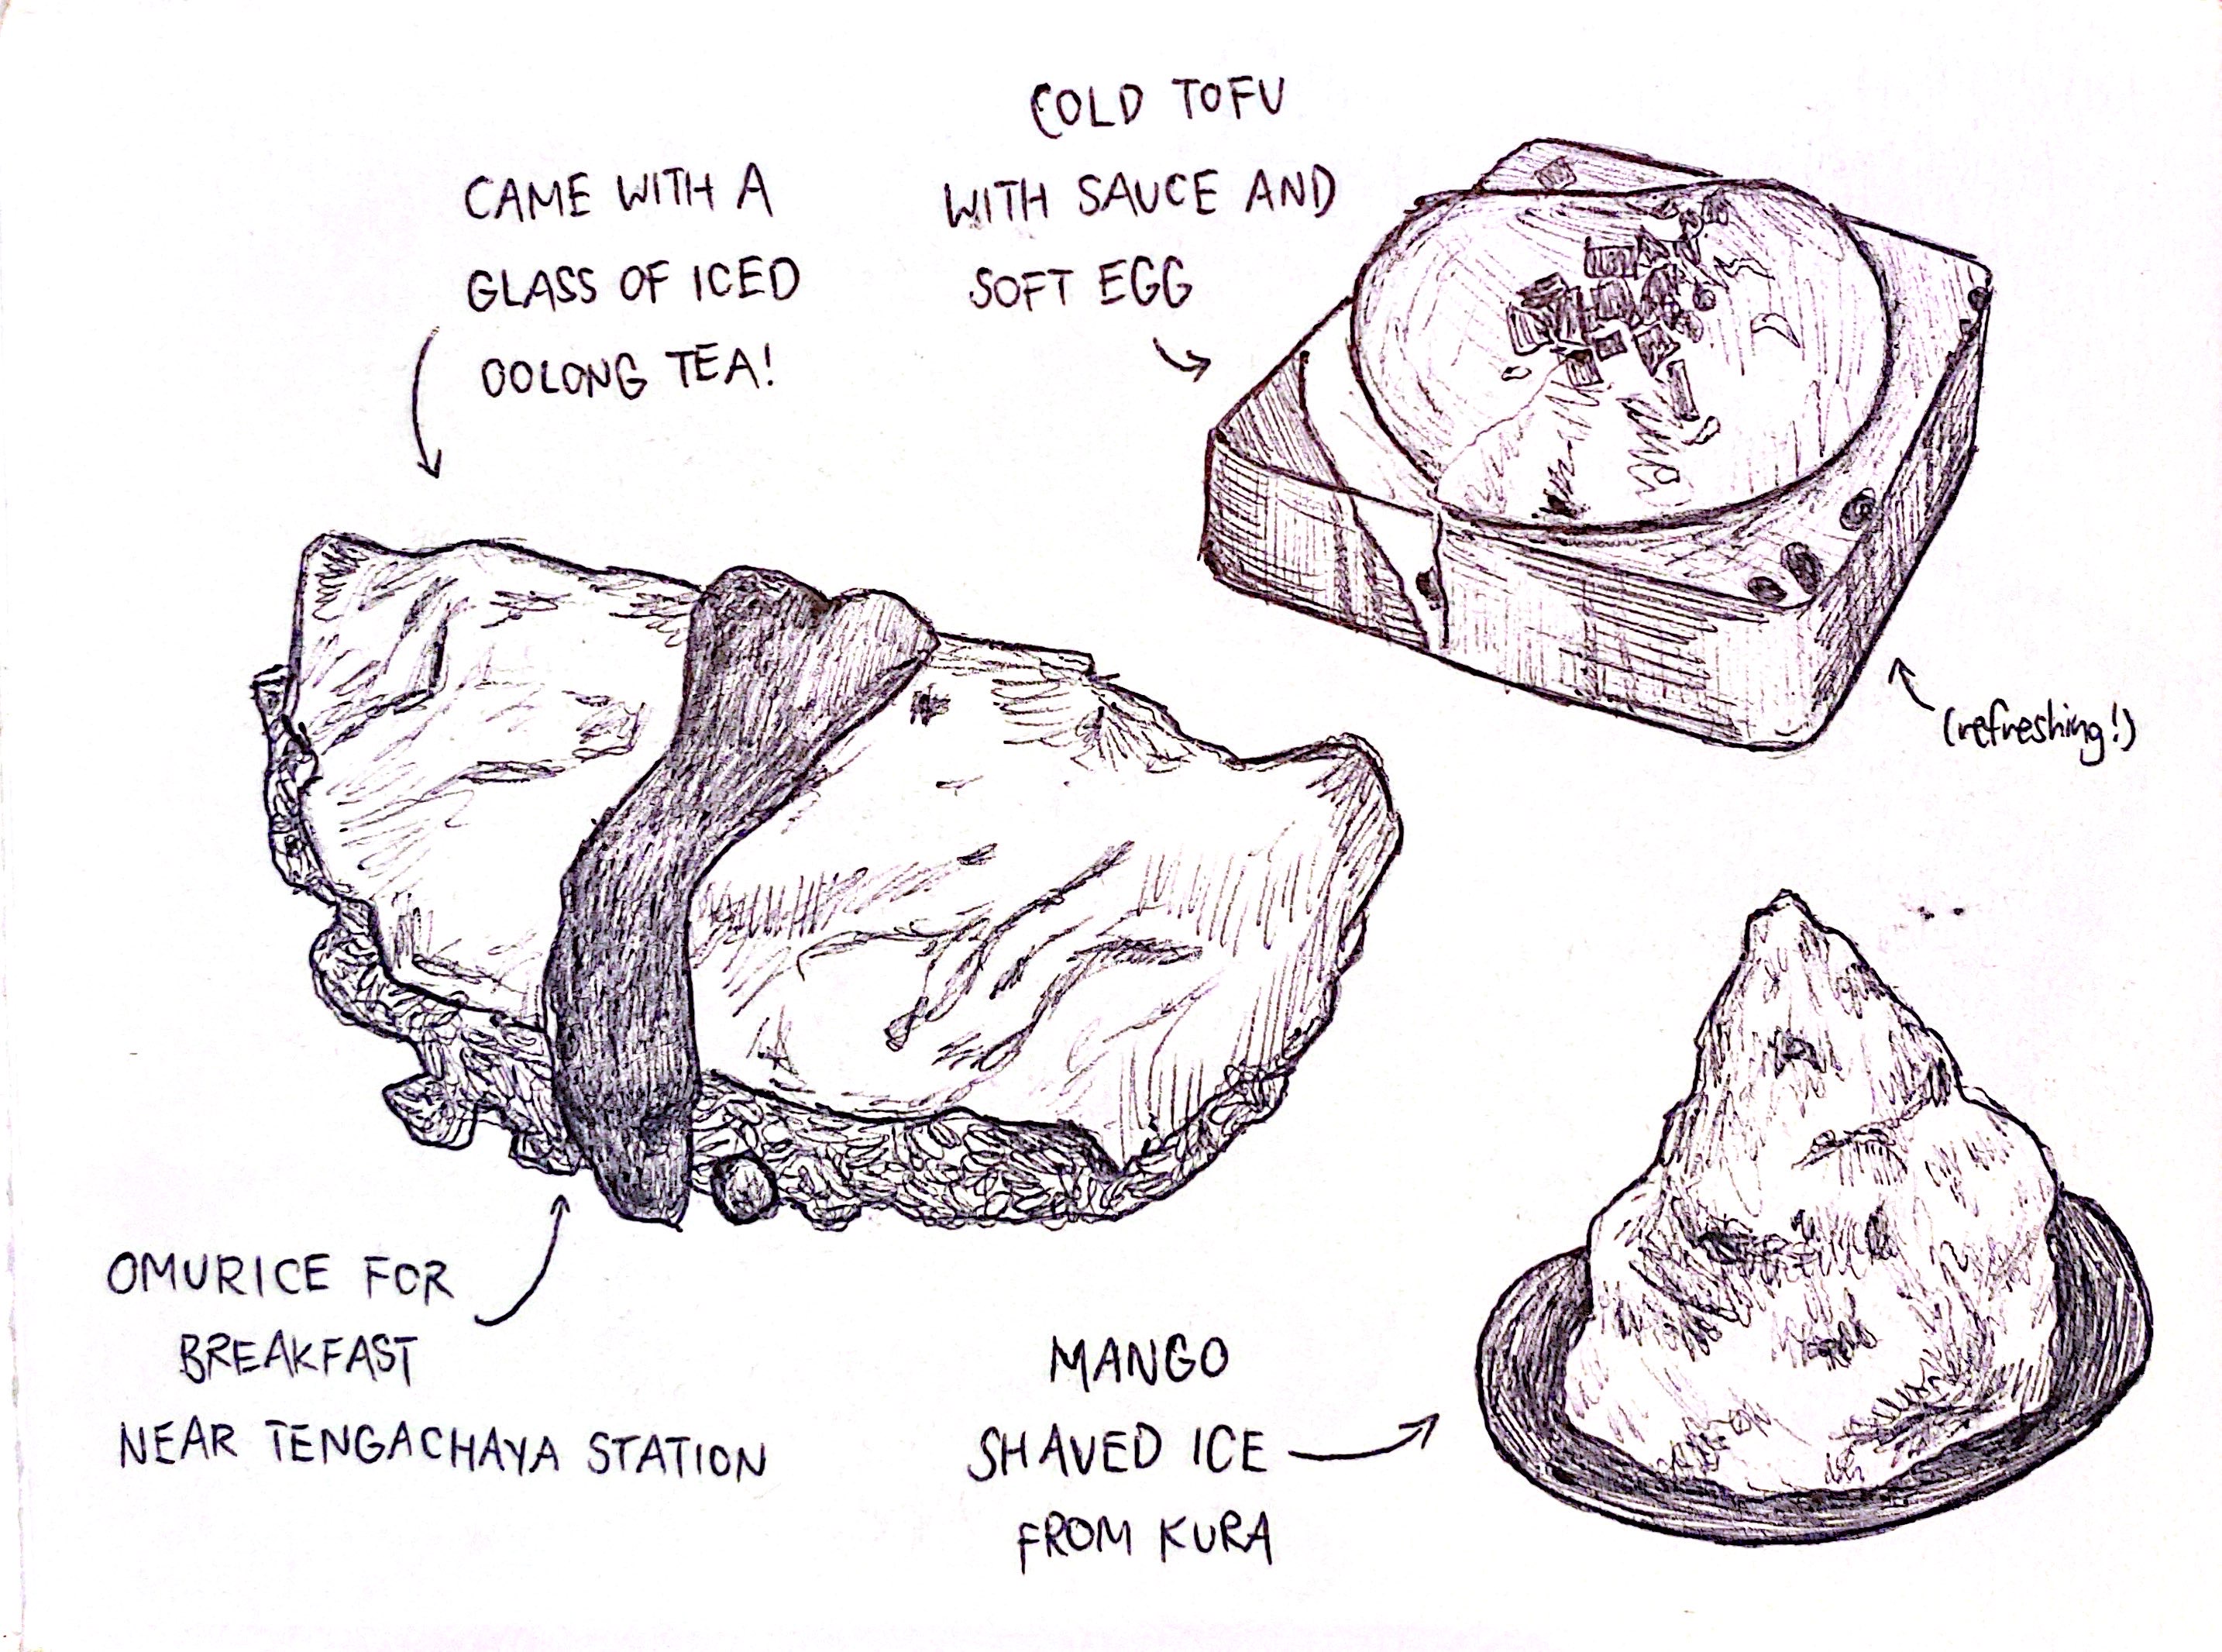 CAME WITH A
GLASS OF ICED
OOLONG TEA!
COLD TOFU
WITH SAUCE AND
SOFT EGG
(refreshing!)
OMURICE FOR
BREAKFAST
NEAR TENGACHAYA STATION
MANGO
SHAVED ICE
FROM KURA